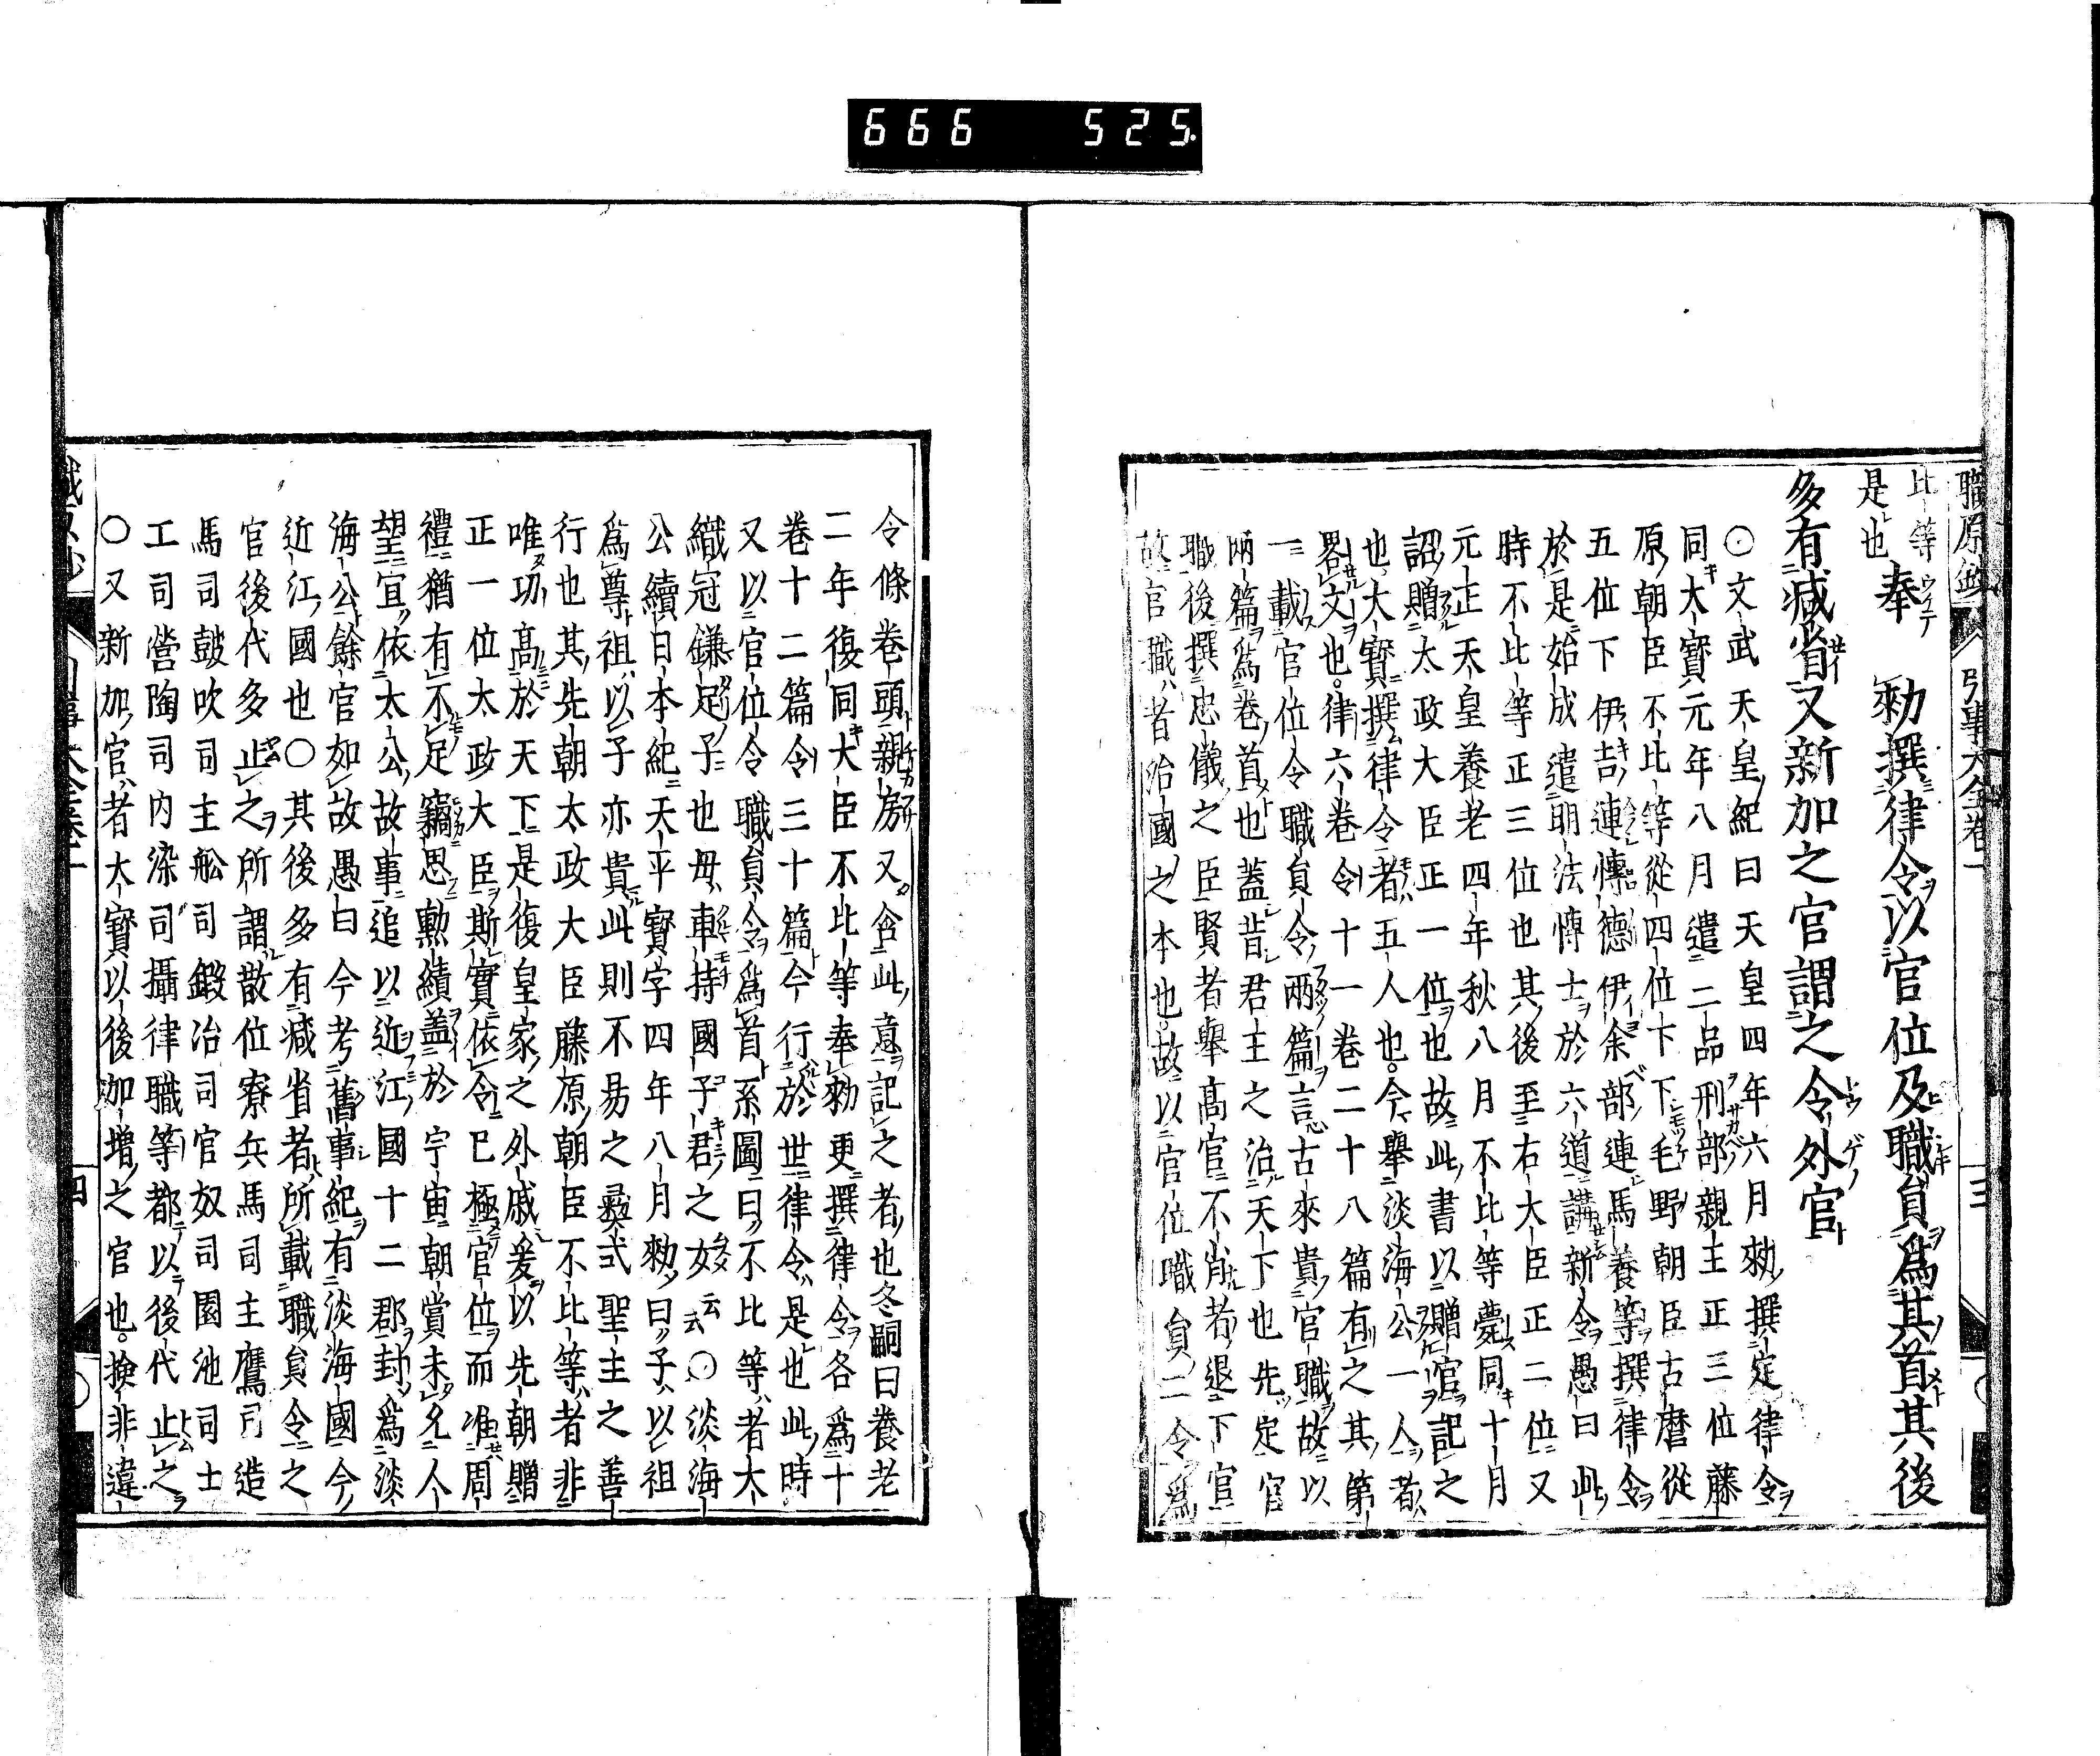 666 525.
職原鈔 引事大全卷一 三
比等奉 勅撰律令以官位及職員爲其首其後
是也
多有減省又新加之官謂之令外官
○文武天皇紀曰天皇四年六月勅撰定律令
同大寳元年八月遣二品刑部親王正三位藤
原朝臣不比等從四位下下毛野朝臣古麿從
五位下伊吉連愽德伊余部連馬養等撰律令
於是始成遣明法愽士於六道講新令愚曰此
時不比等正三位也其後至右大臣正二位又
元正天皇養老四年秋八月不比等薨同十月
詔贈太政大臣正一位也故此書以贈官記之
也大寳撰律令者五人也今舉淡海公一人者
畧文也律六卷令十一卷二十八篇有之其第
一載官位令職員令兩篇言古來貴官職故以
兩篇爲卷首也蓋昔君主之治天下也先定官
職後撰忠儀之臣賢者舉高官不肖者退下官
故官職者治國之本也故以官位職員二令爲
令條卷頭親房又含此意記之者也冬嗣曰養老
二年復同大臣不比等奉勅更撰律令各爲十
卷十二篇令三十篇今行於世律令是也此時
又以官位令職員令爲首系圖曰不比等者大
織冠鎌足子也母車持國子君之女云云○淡海
公續日本紀天平寳字四年八月勅曰子以祖
爲尊祖以子亦貴此則不易之彜式聖主之善
行也其先朝太政大臣藤原朝臣不比等者非
唯功高於天下是復皇家之外戚爰以先朝贈
正一位太政大臣斯實依令已極官位而准周
禮猶有不足竊思勲績蓋於宇宙朝賞未允人
望宜依太公故事追以近江國十二郡封爲淡
海公餘官如故愚曰今考舊事紀有淡海國今
近江國也○其後多有減省者所載職員令之
官後代多止之所謂散位寮兵馬司主鷹司造
馬司鼓吹司主舩司鍛冶司官奴司園池司士
工司營陶司内染司攝律職等都以後代止之
○又新加官者大寳以後加增之官也撿非違